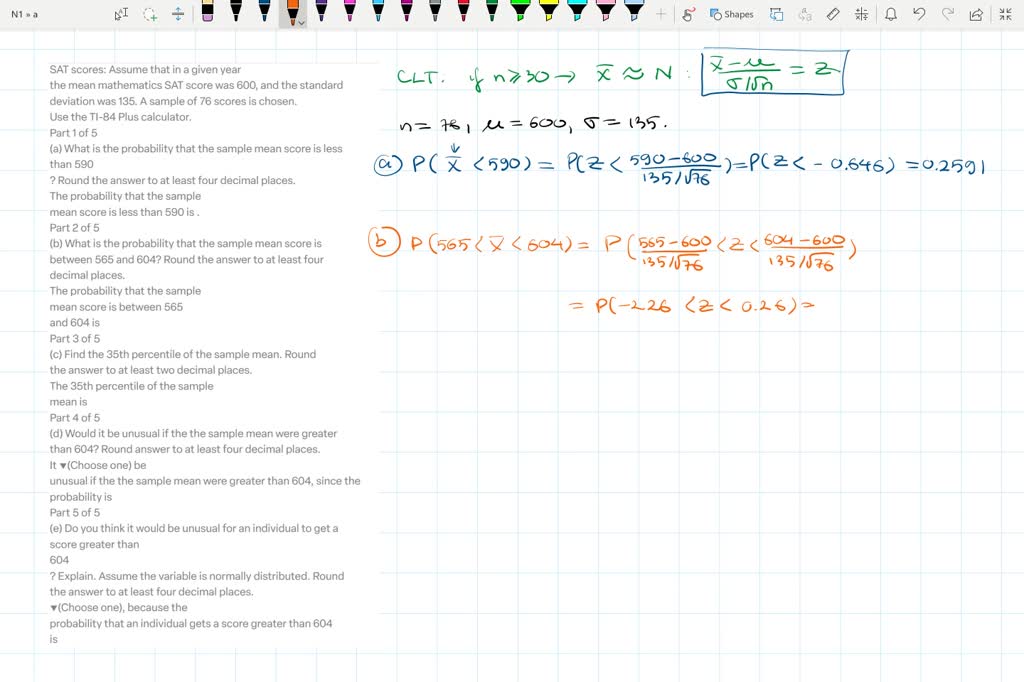 N1 » a
Shapes
SAT scores: Assume that in a given year
the mean mathematics SAT score was 600, and the standard
deviation was 135. A sample of 76 scores is chosen.
Use the TI-84 Plus calculator.
Part 1 of 5
(a) What is the probability that the sample mean score is less
than 590
? Round the answer to at least four decimal places.
The probability that the sample
mean score is less than 590 is .
Part 2 of 5
(b) What is the probability that the sample mean score is
between 565 and 604? Round the answer to at least four
decimal places.
The probability that the sample
mean score is between 565
and 604 is
Part 3 of 5
(c) Find the 35th percentile of the sample mean. Round
the answer to at least two decimal places.
The 35th percentile of the sample
mean is
Part 4 of 5
(d) Would it be unusual if the the sample mean were greater
than 604? Round answer to at least four decimal places.
It ▾(Choose one) be
unusual if the the sample mean were greater than 604, since the
probability is
Part 5 of 5
(e) Do you think it would be unusual for an individual to get a
score greater than
604
? Explain. Assume the variable is normally distributed. Round
the answer to at least four decimal places.
▾(Choose one), because the
probability that an individual gets a score greater than 604
is
CLT. if n ≥ 30 → x̄ ≈ N : (x̄ - μ)/(σ/√n) = Z
n = 76, μ = 600, σ = 135.
(a) P(x̄ < 590) = P(Z < (590-600)/(135/√76)) = P(Z < -0.646) = 0.2591
(b) P(565 < x̄ < 604) = P((565-600)/(135/√76) < Z < (604-600)/(135/√76))
= P(-2.26 < Z < 0.26) =